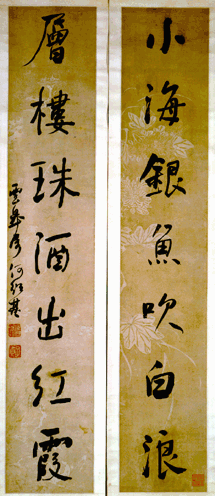 小海銀魚吹白浪
層樓珠酒出紅霞
何紹基